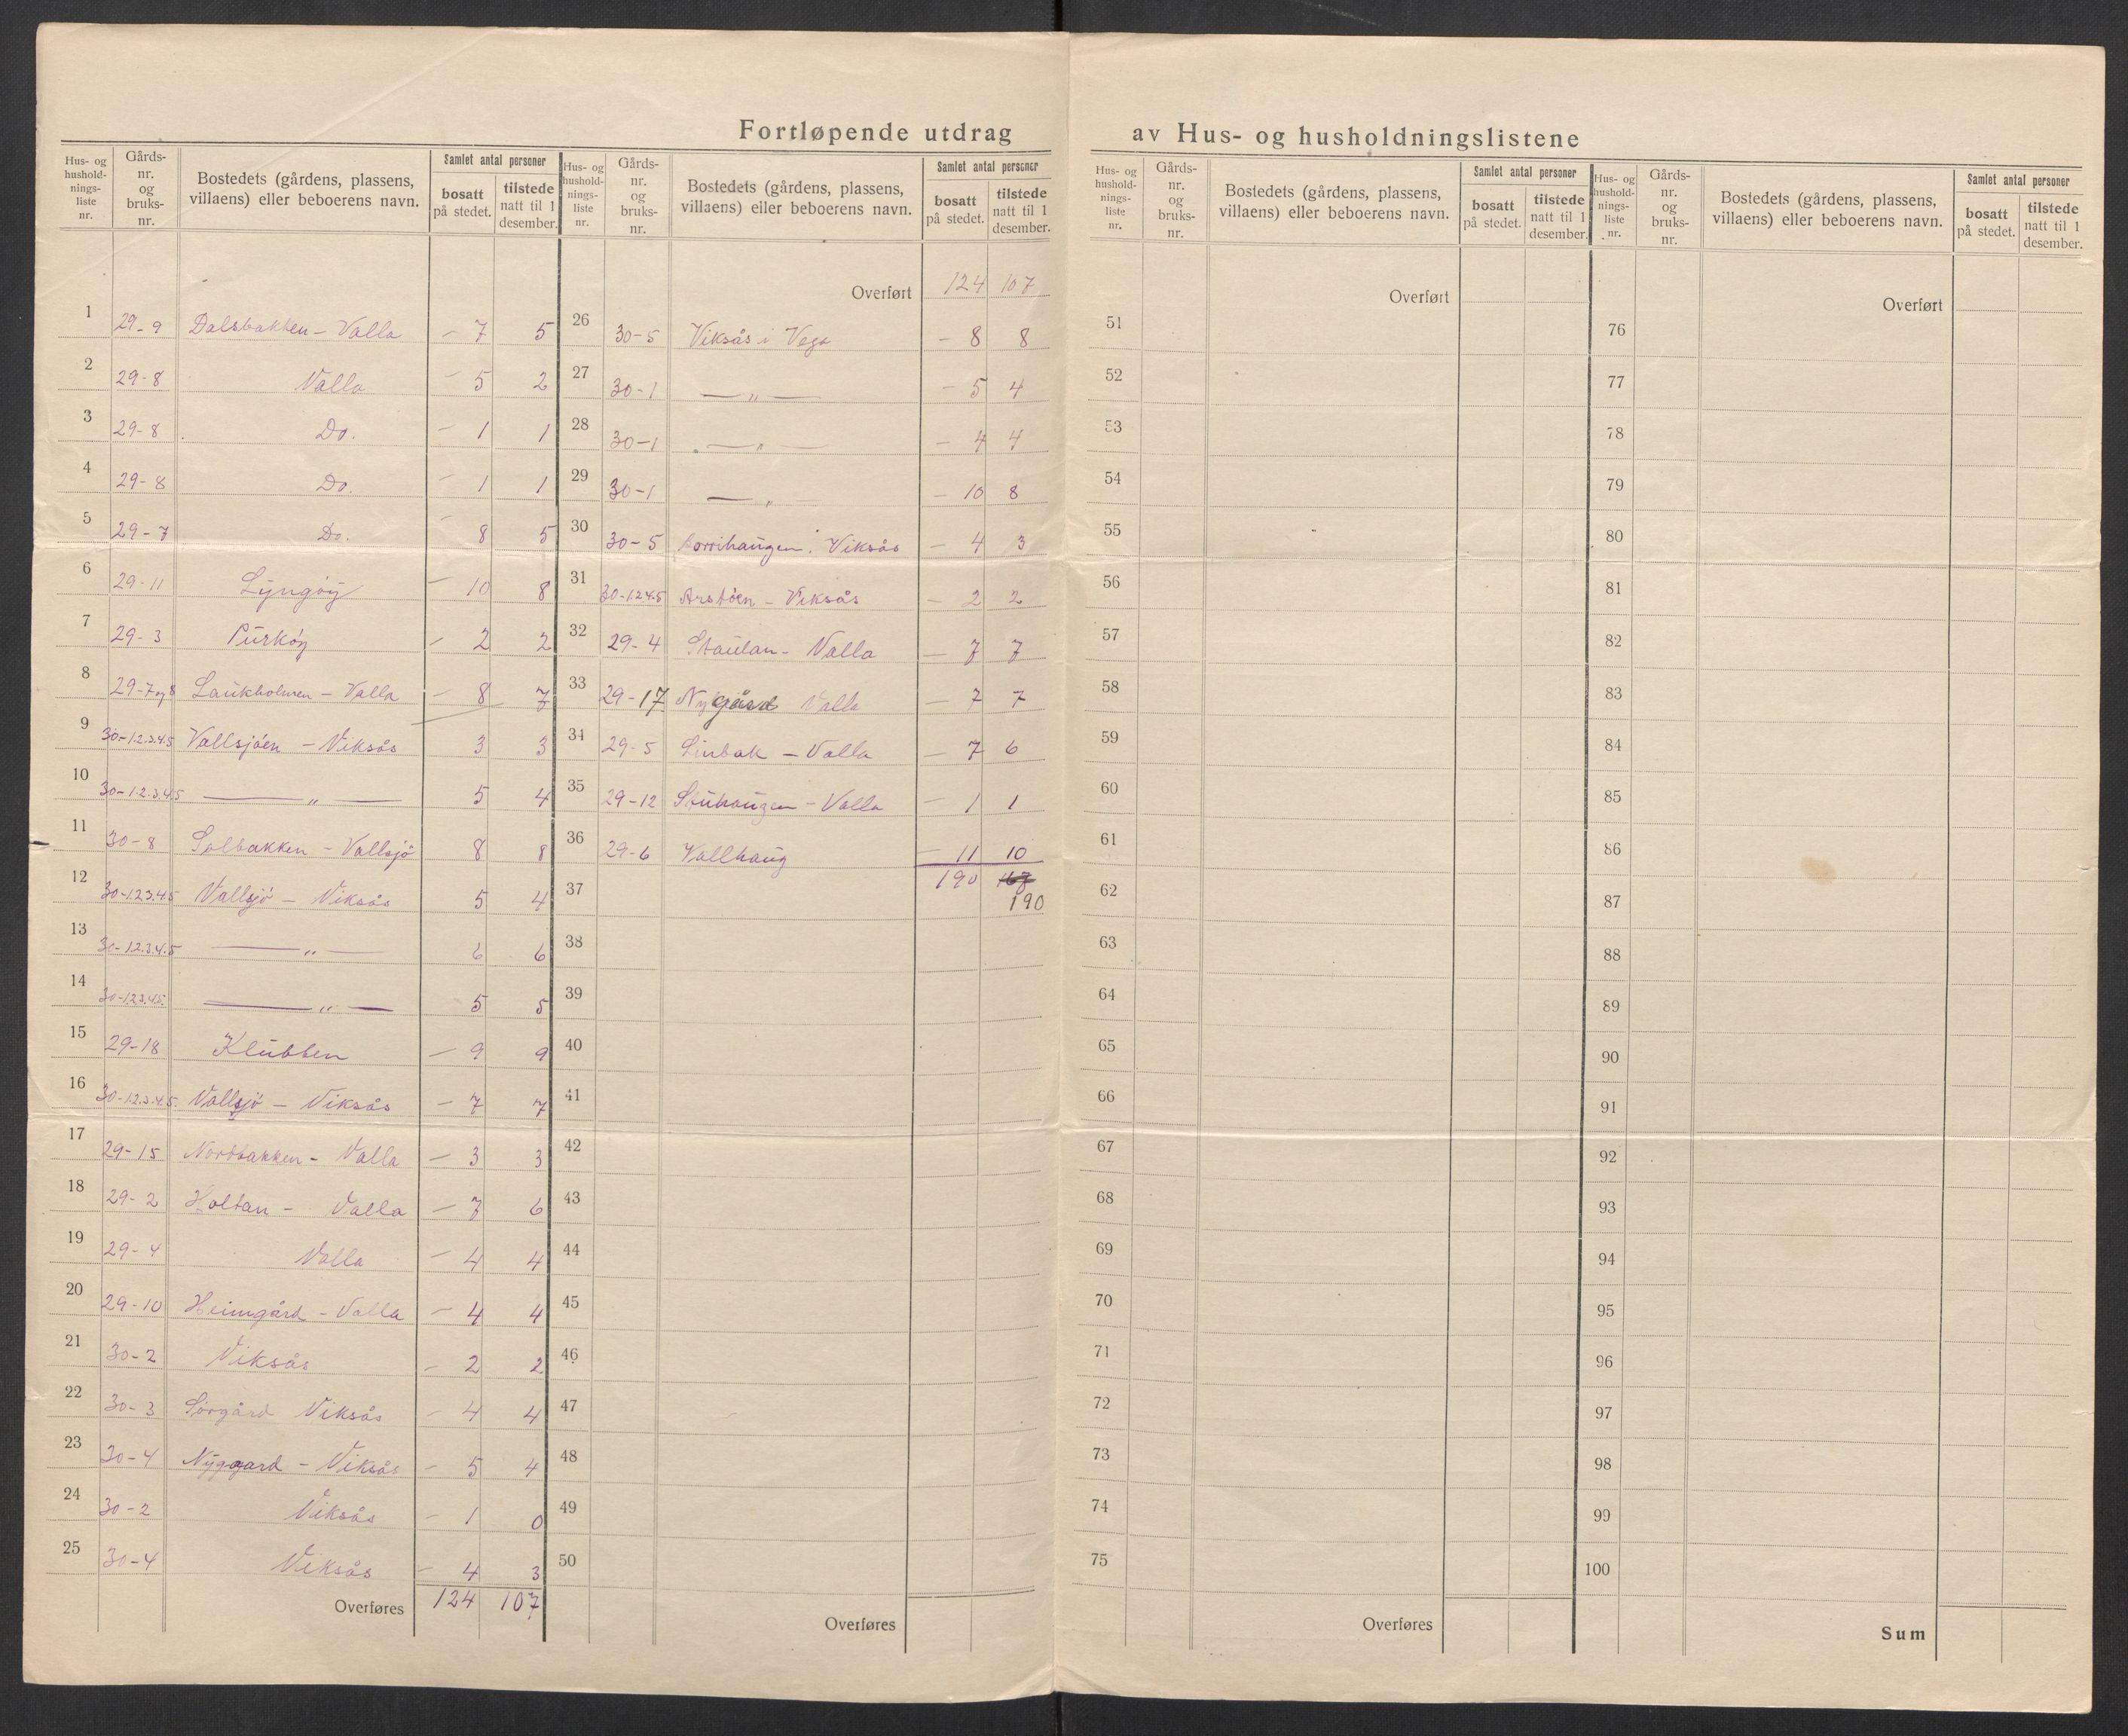 Fortløpende utdrag av Hus- og husholdningslistene
Hus- og husholdningsliste nr. Gårds-nr. og bruks-nr. Bostedets (gårdens, plassens, villaens) eller beboerens navn. Samlet antal personer bosatt på stedet. tilstede natt til 1 desember.
1 29-9 Dalsbakken - Valla - 7 5
2 29-8 Valla - 5 2
3 29-8 Do. - 1 1
4 29-8 Do. - 1 1
5 29-7 Do. - 8 5
6 29-11 Lyngöy - 10 8
7 29-3 Purköy - 2 2
8 29-7 og 8 Laukholmen - Valla - 8 7
9 30-1.2.3.4.5 Vallsjöen - Viksås 3 3
10 30-1.2.3.4.5 — „ — 5 4
11 30-8 Solbakken - Vallsjö 8 8
12 30-1.2.3.4.5 Vallsjö - Viksås 5 4
13 30-1.2.3.4.5 — „ — 6 6
14 30-1.2.3.4.5. — „ — 5 5
15 29-18 Klubben - 9 9
16 30-1.2.3.4.5. Vallsjö - Viksås - 7 7
17 29-15 Nordbakken - Valla - 3 3
18 29-2 Holtan - Valla - 7 6
19 29-4 Valla - 4 4
20 29-10 Heimgård - Valla - 4 4
21 30-2 Viksås - 2 2
22 30-3 Sörgård Viksås - 4 4
23 30-4 Nyggard - Viksås - 5 4
24 30-2 Viksås - 1 0
25 30-4 Viksås - 4 3
Overføres 124 107
Hus- og husholdningsliste nr. Gårds-nr. og bruks-nr. Bostedets (gårdens, plassens, villaens) eller beboerens navn. Samlet antal personer bosatt på stedet. tilstede natt til 1 desember.
Overført 124 107
26 30-5 Viksås i Vega - 8 8
27 30-1 — „ — - 5 4
28 30-1 — „ — - 4 4
29 30-1 — „ — - 10 8
30 30-5 Viksås - 4 3
31 30-1.2.4.5 - Viksås - 2 2
32 29-4 Staulan - Valla - 7 7
33 29-17 Nygård Valla - 7 7
34 29-5 Linbak - Valla - 7 6
35 29-12 Stuhaugen - Valla - 1 1
36 29-6 Vallhaug - 11 10
37 190 167
190
38
39
40
41
42
43
44
45
46
47
48
49
50
Overføres
Hus- og husholdningsliste nr. Gårds-nr. og bruks-nr. Bostedets (gårdens, plassens, villaens) eller beboerens navn. Samlet antal personer bosatt på stedet. tilstede natt til 1 desember.
Overført
51
52
53
54
55
56
57
58
59
60
61
62
63
64
65
66
67
68
69
70
71
72
73
74
75
Overføres
Hus- og husholdningsliste nr. Gårds-nr. og bruks-nr. Bostedets (gårdens, plassens, villaens) eller beboerens navn. Samlet antal personer bosatt på stedet. tilstede natt til 1 desember.
Overført
76
77
78
79
80
81
82
83
84
85
86
87
88
89
90
91
92
93
94
95
96
97
98
99
100
Sum